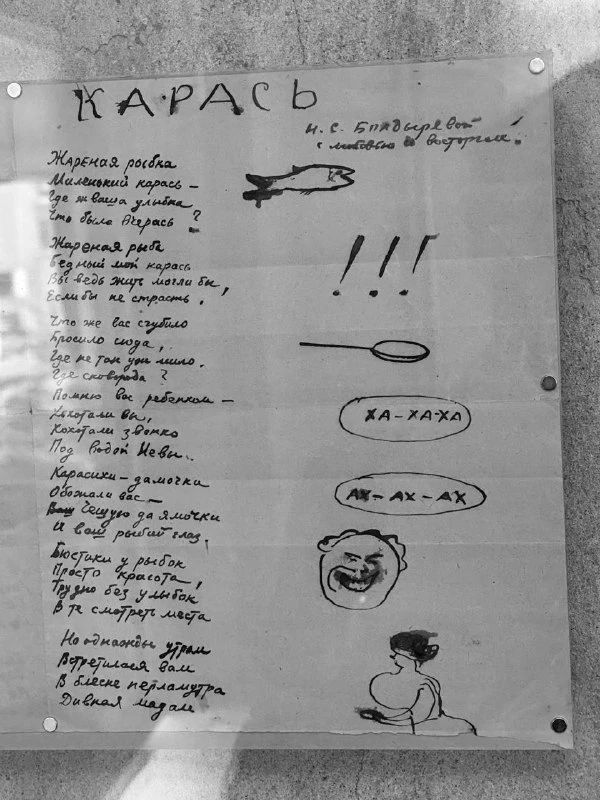 КАРАСЬ
Н. С. Болдыревой
с любовью и восторгом!
Жареная рыбка
Миленький карась —
Где ж ваша улыбка
Что была вчерась?
Жареная рыба
Бедный мой карась
Вы ведь жить могли бы,
Если бы не страсть.
!!!
Что же вас сгубило
Бросило сюда,
Где не так уж мило,
Где сковорода?
Помню вас ребенком —
Хохотали вы,
Хохотали звонко
Под водой Невы.
ХА-ХА-ХА
Карасихи-дамочки
Обожали вас —
Вашу чешую да ямочки
И ваш рыбий глаз.
АХ-АХ-АХ
Бюстики у рыбок
Просто красота,
Трудно без улыбок
В те смотреть места
Но однажды утром
Встретилася вам
В блеске перламутра
Дивная мадам